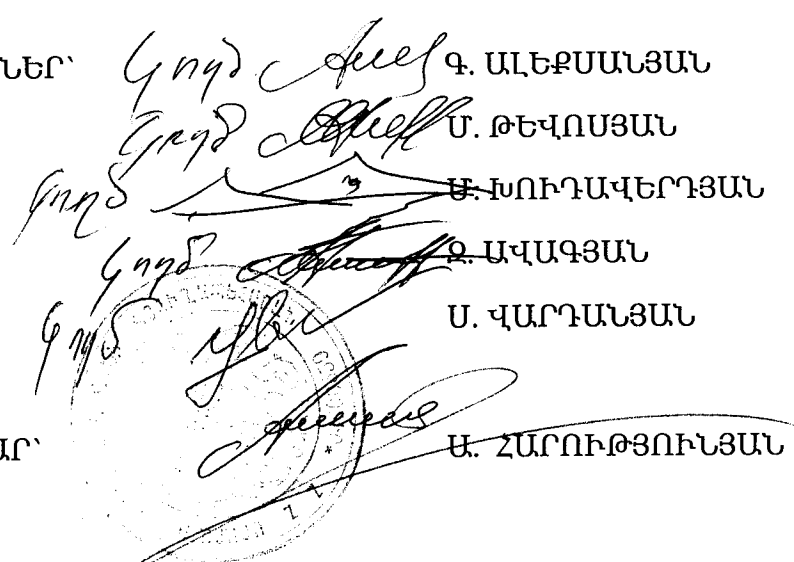 ՆԵՐ՝ կողմ Գ. ԱԼԵՔՍԱՆՅԱՆ
կողմ Մ. ԹԵՎՈՍՅԱՆ
կողմ Ս. ԽՈՒԴԱՎԵՐԴՅԱՆ
կողմ Զ. ԱՎԱԳՅԱՆ
կողմ Ս. ՎԱՐԴԱՆՅԱՆ
ԱՐ՝ Ա. ՀԱՐՈՒԹՅՈՒՆՅԱՆ